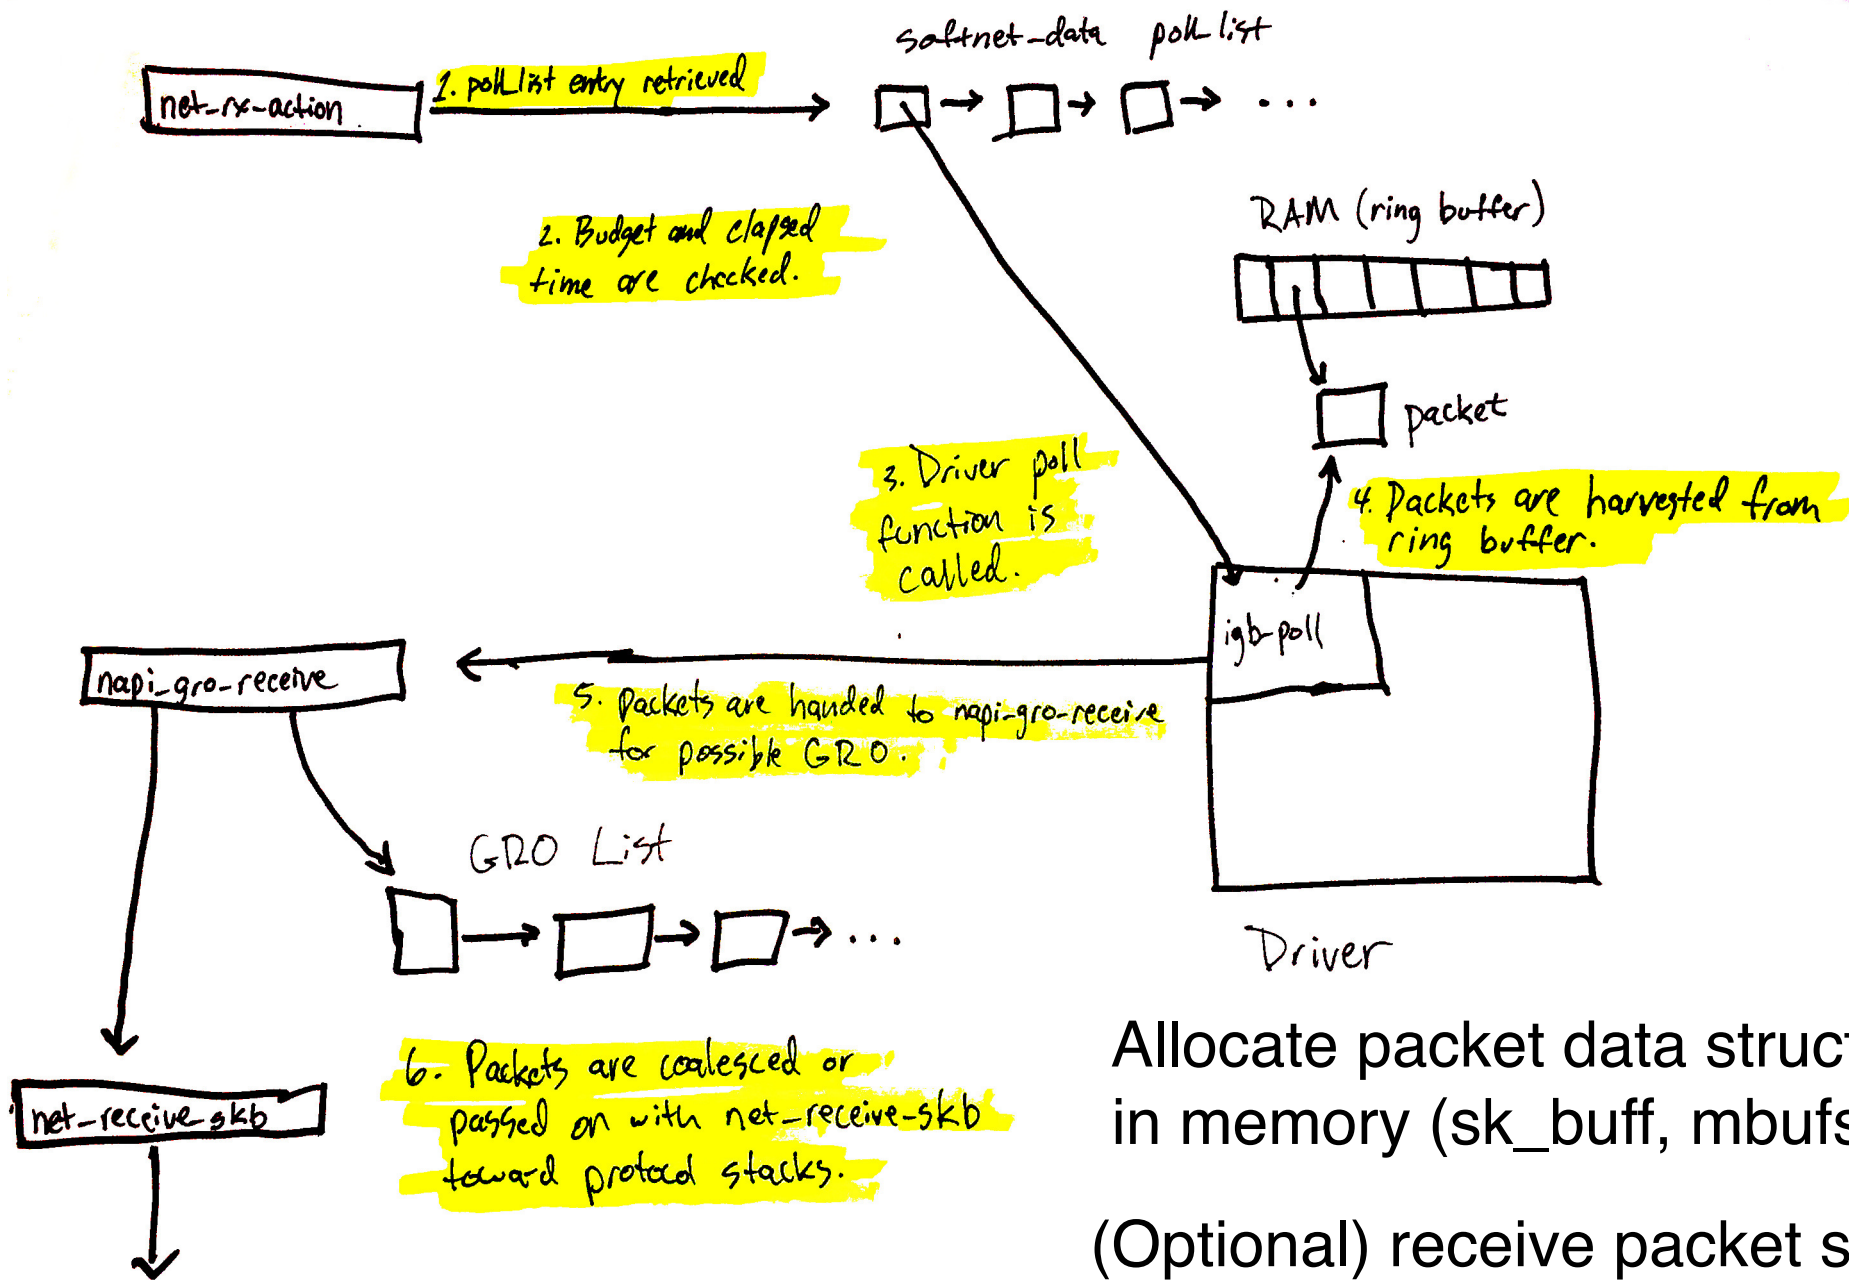 softnet_data poll_list
net_rx_action
1. poll_list entry retrieved
...
2. Budget and elapsed
time are checked.
RAM (ring buffer)
packet
3. Driver poll
function is
called.
4. Packets are harvested from
ring buffer.
igb_poll
napi_gro_receive
5. Packets are handed to napi_gro_receive
for possible GRO.
GRO List
...
Driver
6. Packets are coalesced or
passed on with net_receive_skb
toward protocol stacks.
net_receive_skb
Allocate packet data struct
in memory (sk_buff, mbufs
(Optional) receive packet s